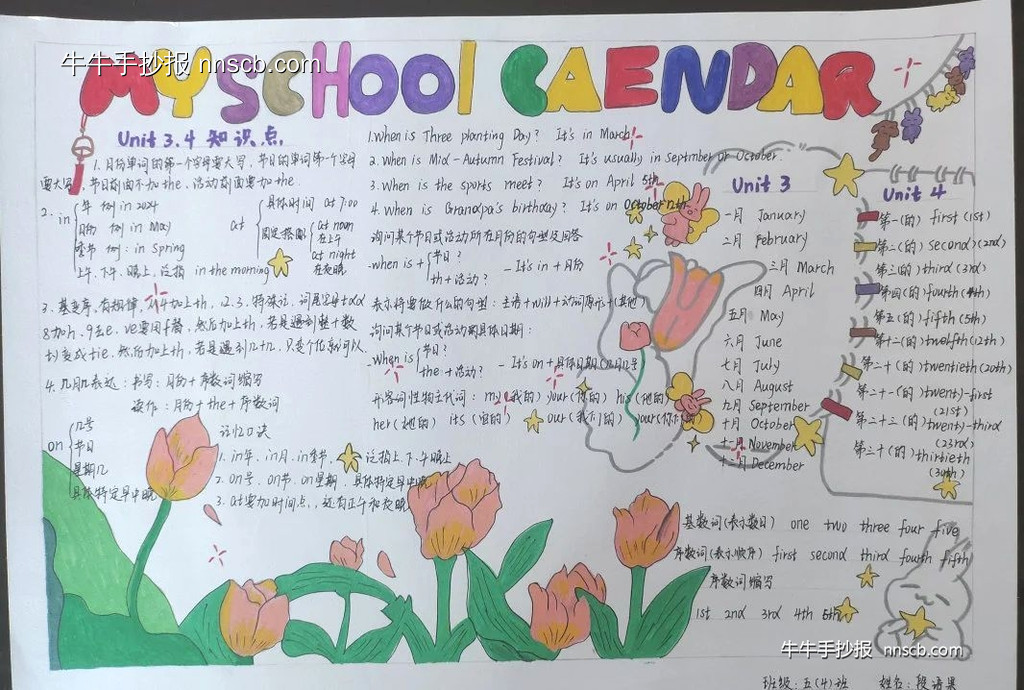 牛牛手抄报 nnscb.com
MY SCHOOL CAENDAR
Unit 3.4 知识点
1. 月份单词的第一个字母要大写，节日的单词第一个字母
要大写，节日前面不加the，活动前面要加the.
2. in
年 例 in 2024
月份 例 in May
季节 例: in Spring
上午、下午、晚上，泛指 in the morning
at
具体时间 at 7:00
固定搭配
at noon
在正午
at night
在夜晚
3. 基变序，有规律，
加上th，1、2、3，特殊记，
8加h，9去e，ve要用f替，然后加上th，若是遇到整十数
ty变成tie，然后加上th，若是遇到几十几，只变个位就可以
4. 几月几日表达：书写：月份+序数词缩写
读作：月份+the+序数词
on
几号
节日
星期几
具体特定早中晚
记忆口诀
1. in年，in月，in季节，
泛指上、下午晚上
2. on号，on节，on星期，具体特定早中晚
3. at要加时间点，还有正午和夜晚
1.When is Three planting Day? It's in March
2. When is Mid-Autumn Festival? It's usually in Septmber or October.
3. When is the sports meet? It's on April 5th
4. When is Grandpa's birthday? It's on October
询问某个节日或活动所在月份的句型及回答
-when is +
节日?
th+活动?
-It's in +月份
表示将要做什么的句型：主语+will+动词原形+(其他)
询问某个节日或活动的具体日期：
-When is
节日?
the +活动?
- It's on +具体日期(几月几号
形容词性物主代词：my(我的) your(你的) his(他的)
her(她的) its(它的) our(我们的) your(你们的)
Unit 3
一月 January
二月 February
三月 March
四月 April
五月 May
六月 June
七月 July
八月 August
九月 September
十月 October
十一月 November
十二月 December
Unit 4
第一(的) first (1st)
第二(的) second (2nd)
第三(的) third (3rd)
第四(的) fourth (4th)
第五(的) fifth (5th)
第十二(的) twelfth (12th)
第二十(的) twentieth (20th)
第二十一(的) twenty-first
(21st)
第二十三(的) twenty-third
(23rd)
第三十(的) thirtieth
(30th)
基数词(表示数目) one two three four five
序数词(表示顺序) first second third fourth fifth
序数词缩写
1st 2nd 3rd 4th 5th
牛牛手抄报 nnscb.com
班级：五(4)班 姓名：段